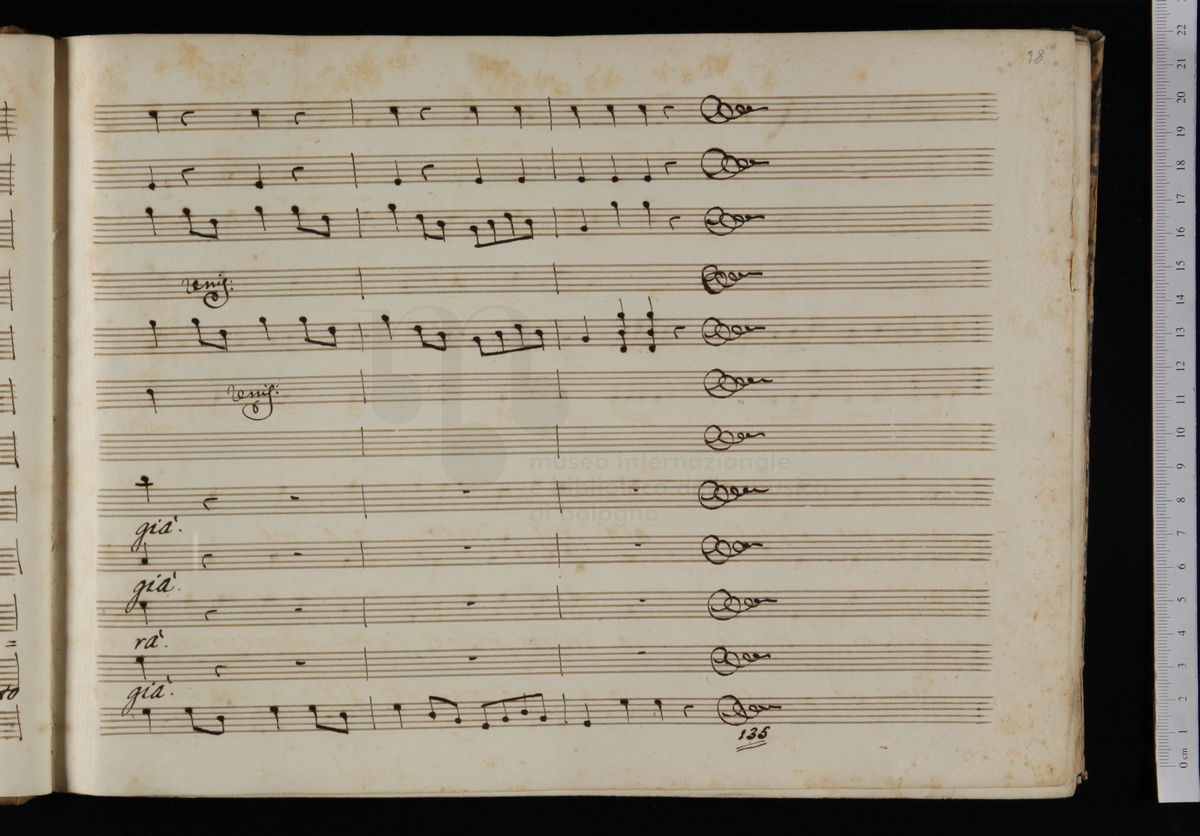 98
unis:
unis:
già.
già.
rà.
già.
135
museo internazionale
di bologna
0 cm 1 2 3 4 5 6 7 8 9 10 11 12 13 14 15 16 17 18 19 20 21 22